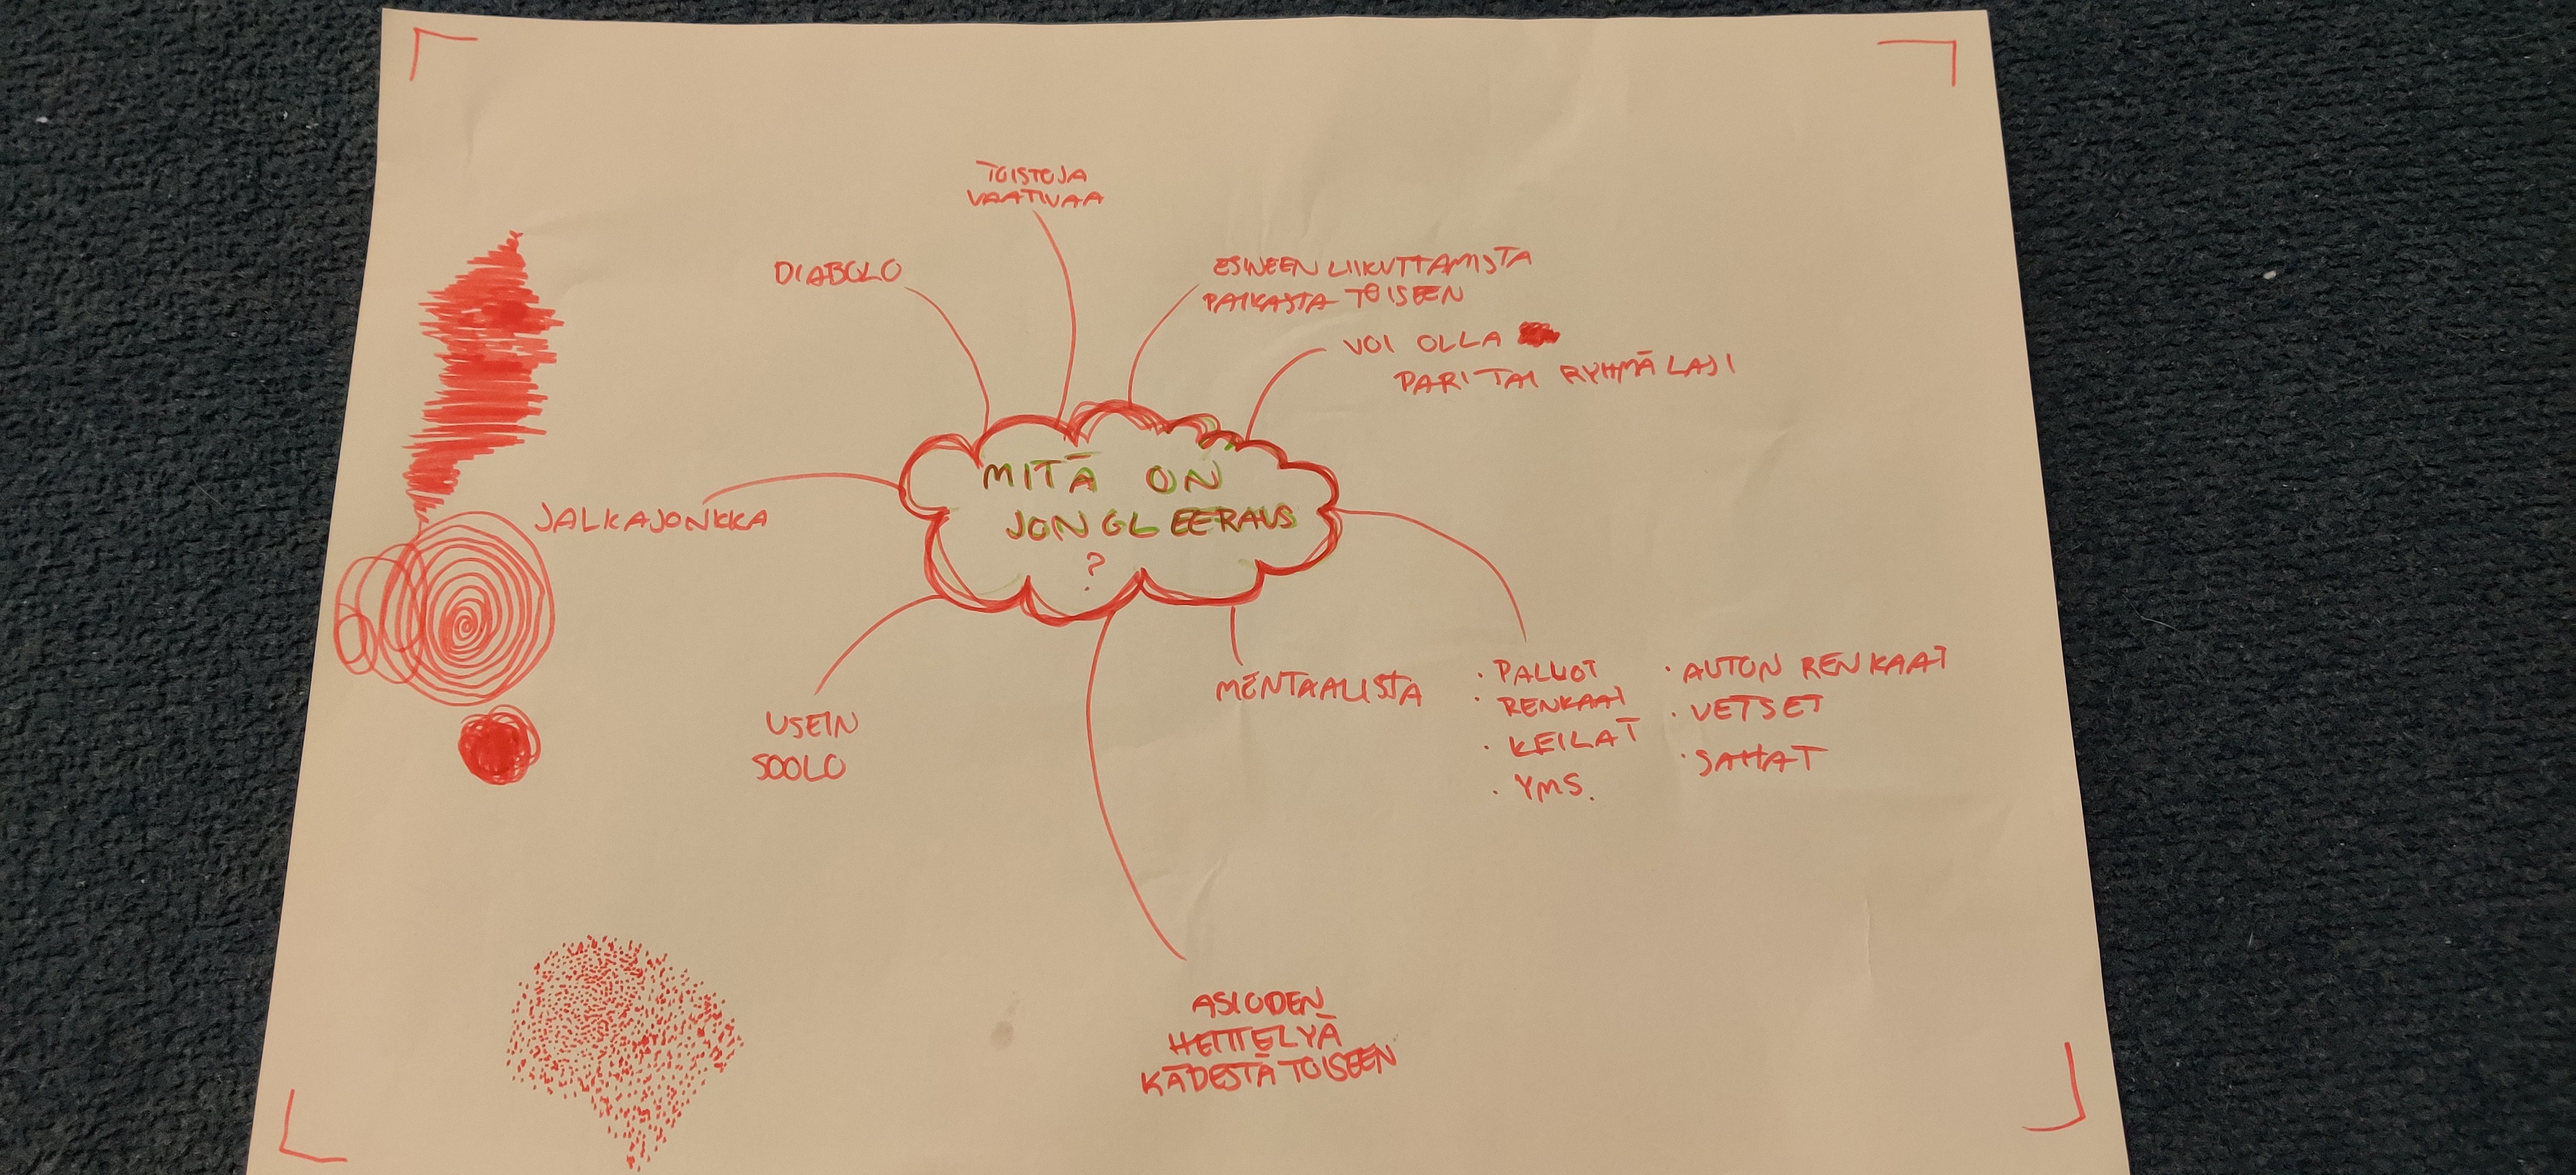 TOISTOJA
VAATIVAA
DIABOLO
ESINEEN LIIKUTTAMISTA
PAIKASTA TOISEEN
VOI OLLA
PARI TAI RYHMÄ LAJI
MITÄ ON
JONGLEERAUS
?
JALKAJONKKA
USEIN
SOOLO
MENTAALISTA
· PALLOT
· RENKAAT
· KEILAT
· YMS.
· AUTON RENKAAT
· VETSET
· SAHAT
ASIODEN
HEITTELYÄ
KÄDESTÄ TOISEEN